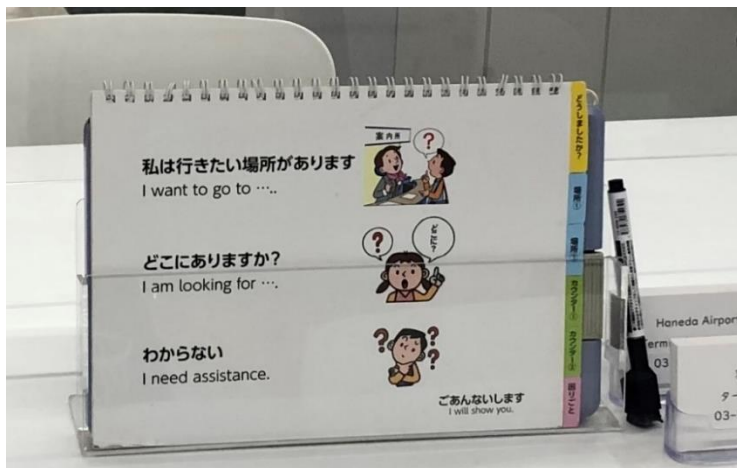 私は行きたい場所があります
I want to go to …..
案内所
?
どこにありますか?
I am looking for ….
?
どこ?
わからない
I need assistance.
? ? ?
ごあんないします
I will show you.
どうしましたか?
場所①
場所②
カウンター①
カウンター②
困りごと
Haneda Airport
03
ター
03-